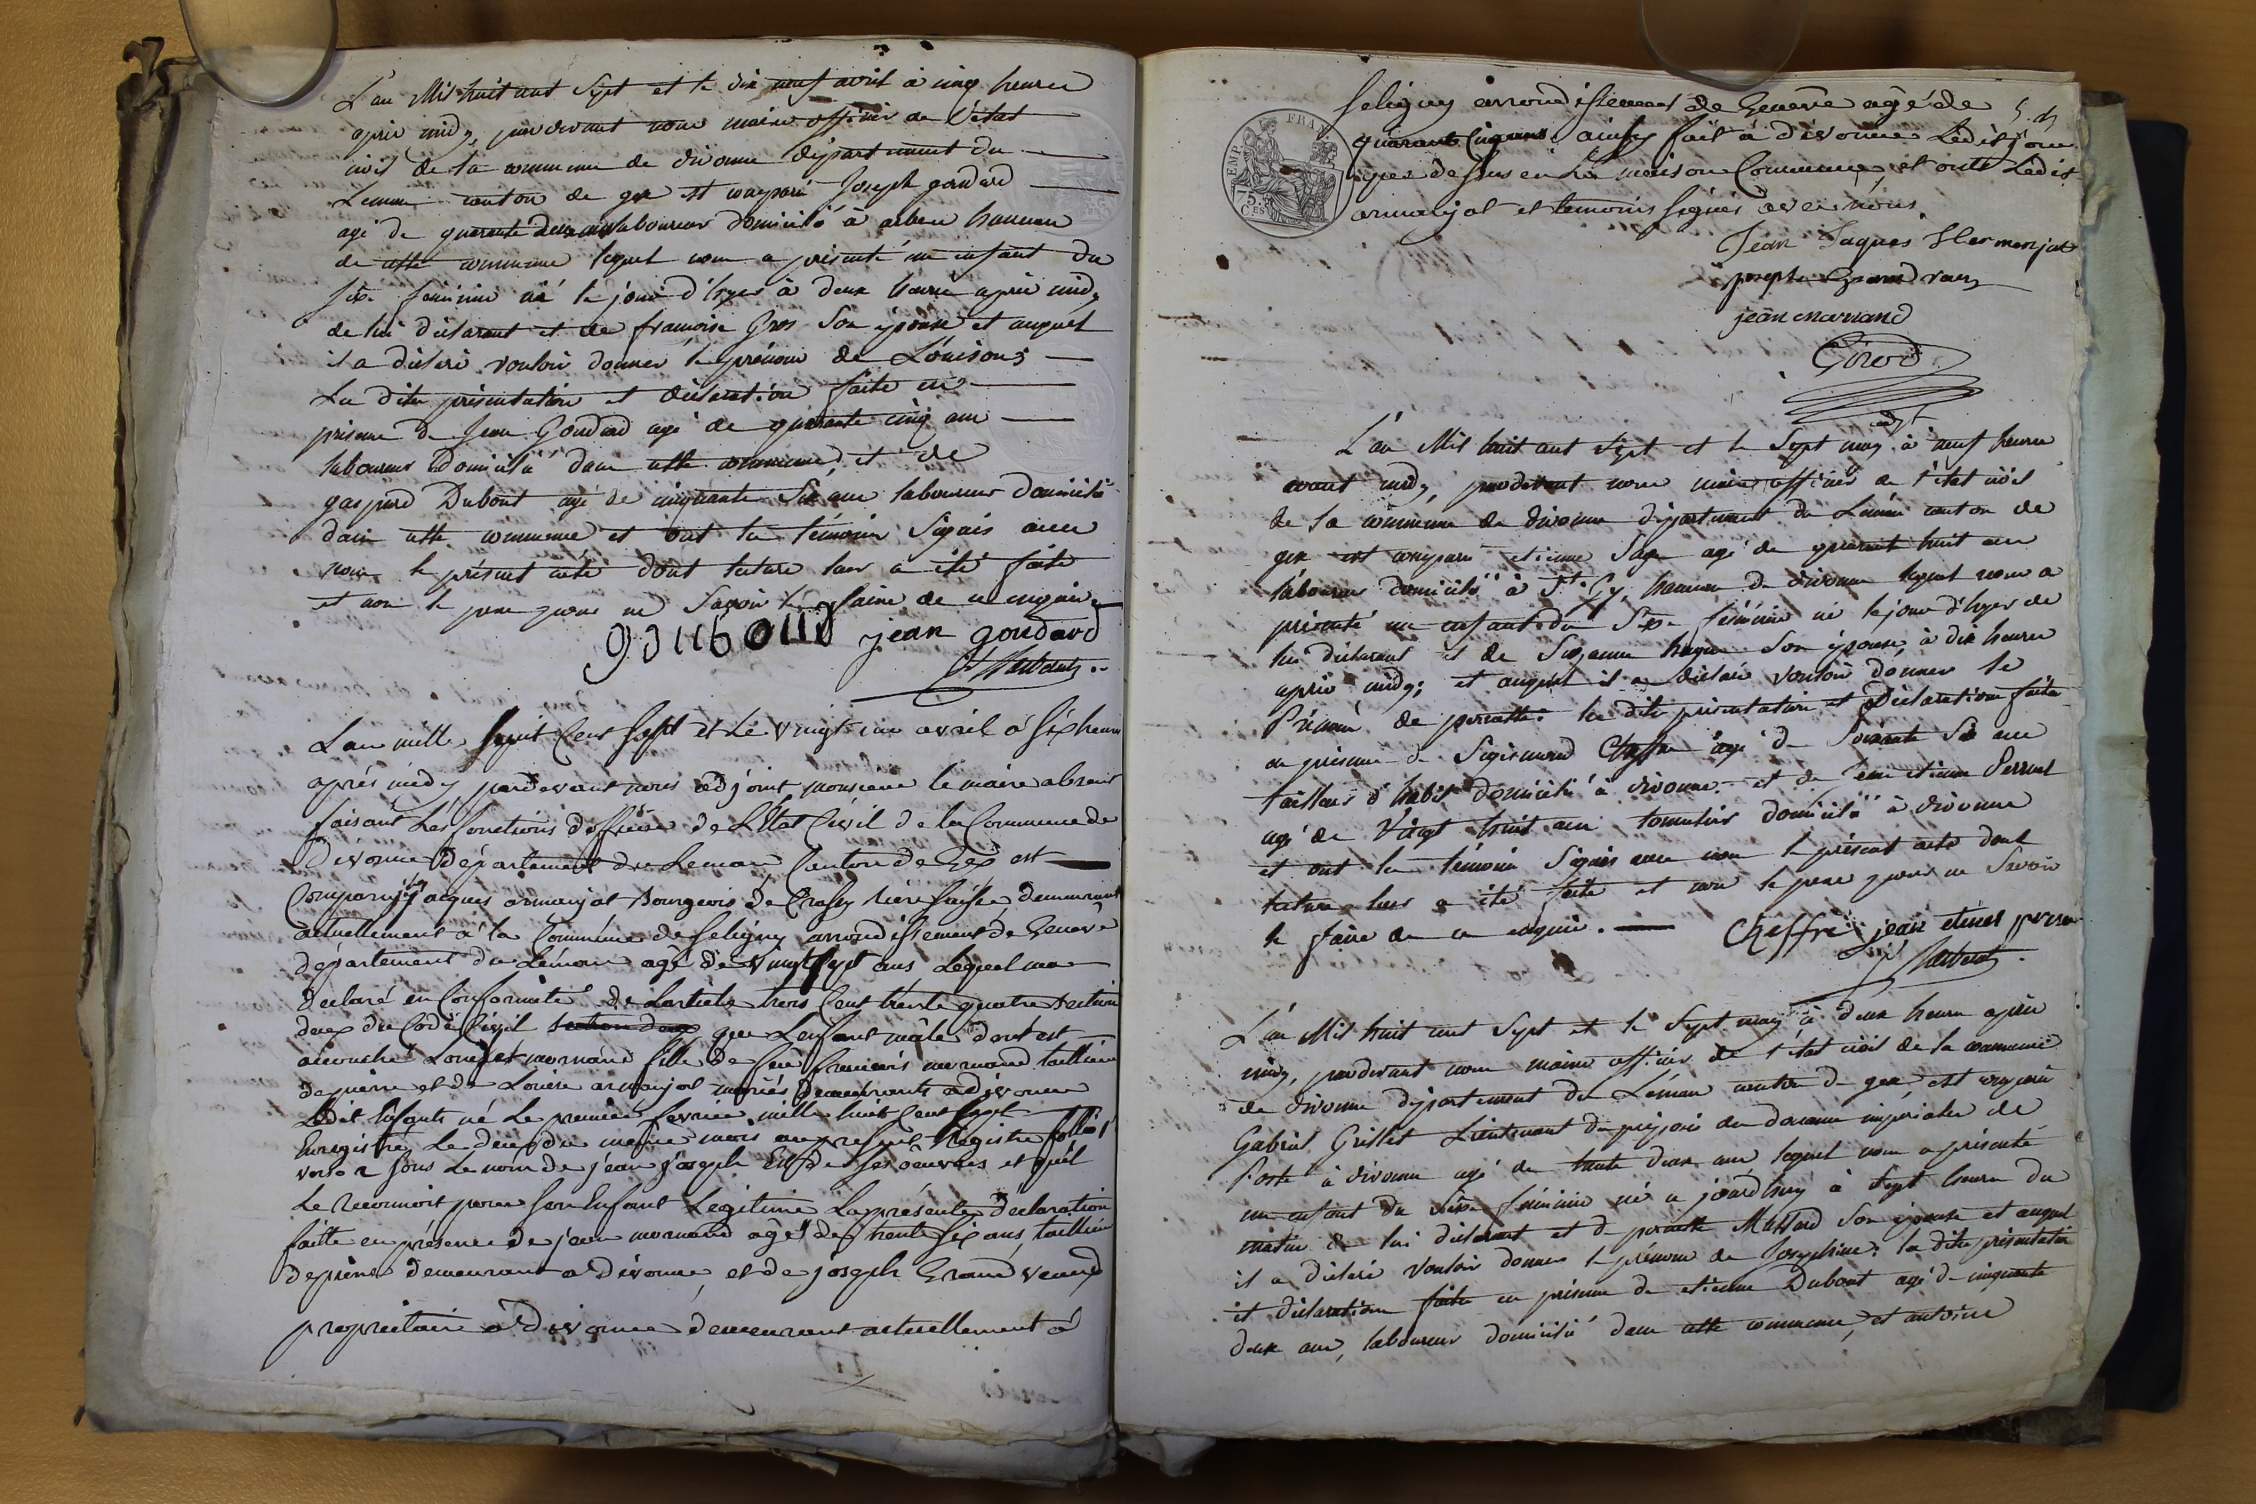 L'an Mil huit cent Sept et le dix neuf avril à cinq heures
après midy, pardevant nous maire officier de l'état
civil de la commune de divonne département du
Leman canton de gex est comparu Joseph goudard
agé de quarante deux ans laboureur domicilié à arbere hameau
de cette commune lequel nous a présenté un enfant du
sexe féminin né le jour d'hyer à deux heures après midy
de lui déclarant et de francoise Gros son épouse et auquel
il a déclaré vouloir donner le prénom de Louison;
La dite présentation et déclaration faite en
présence de Jean Goudard agé de quarante cinq ans
laboureur domicilié dans cette commune, et de
gaspard Dubout agé de cinquante Six ans laboureur domicilié
dans cette commune et ont les témoins Signés avec
nous le présent acte dont lecture leur a été faite
et non le pere pour ne Savoir le faire de ce enquis.
jean goudard
L'an mille huit Cent Sept et Le vingt un avril à Six heures
après midy pardevant nous adjoint, monsieur le maire absent
faisant Les fonctions d'officier de L'Etat Civil de la Commune de
Divonne Département du Leman, Canton de Gex est
Comparu jacques armanjat Bourgeois de Crassy demeurant
actuellement à la Commune de Seligny arrondissement de Geneve
département du Léman agé de vingt sept ans Lequel nous a
déclaré en Conformité de Larticle trois Cent trente quatre section
deux du Code Civil section deux que L'enfant mâle dont est
accouché mornand fille de feu francois mornand taillieur
de pierre et de Louise armanjat mariés demeurants a divonne
Ledit Enfants né Le premier fevrier mille huit Cent Sept
Enregistré Le deux du même mois au present Registre follio 1
verso 2 sous Le nom de jean joseph Est de ses oeuvres et qu'il
Le reconnoit pour son Enfant Legitime La présente déclaration
faitte en présence de jean mornand agé de trente six ans, taillieur
de pierre demeurant a divonne, et de joseph Grand vaux
propriétaire à Divonne demeurant actuellement à
Seligny arrondissement de Geneve agé de
quarante Cinq ans ainsy fait à divonne Ledit jour
que dessus en La maison Commune, et ont Ledit
armanjat et temoins signés avec nous
Jean Jaques Hermenjat
joseph Grand vaux
jean mornand
Girod
adjt
L'an Mil huit cent Sept et le Sept may à neuf heures
avant midy, pardevant nous maire officier de l'état civil
de la commune de divonne département du Léman canton de
gex est comparu etienne Sage agé de quarante huit ans
laboureur domicilié à St. Gy, hameau de divonne lequel nous a
présenté un enfant du Sexe féminin né le jour d'hyer de
lui déclarant et de Suzanne son épouse, à dix heures
après midy; et auquel il a déclaré vouloir donner le
Prénom de pernette: la dite présentation et Déclaration faite
en présence de Sigismond Cheffre agé de Soixante Six ans
tailleur d'habit domicilié à divonne et de Jean etienne Perrot
agé de Vingt huit ans tonnelier domicilié à divonne
et ont les témoins Signés avec nous le présent acte dont
lecture leur a été faite et non le pere pour ne Savoir
le faire de ce enquis. Cheffre jean etienes
L'an Mil huit cent Sept et le Sept may à deux heures après
midy, pardevant nous maire officier de l'état civil de la commune
de divonne département du Léman canton de gex est comparu
Gabriel Grillet Lieutenant du préposés des douanes impériales de
Poste à divonne agé de trente deux ans lequel nous a présenté
un enfant du Sexe féminin né ce jourd'huy à Sept heures du
matin de lui déclarant et de pernette Mattard Son épouse et auquel
il a déclaré vouloir donner le prénom de Josephine: la dite présentation
et déclaration faite en présence de etienne Dubout agé de cinquante
deux ans, laboureur domicilié dans cette commune, et antoine